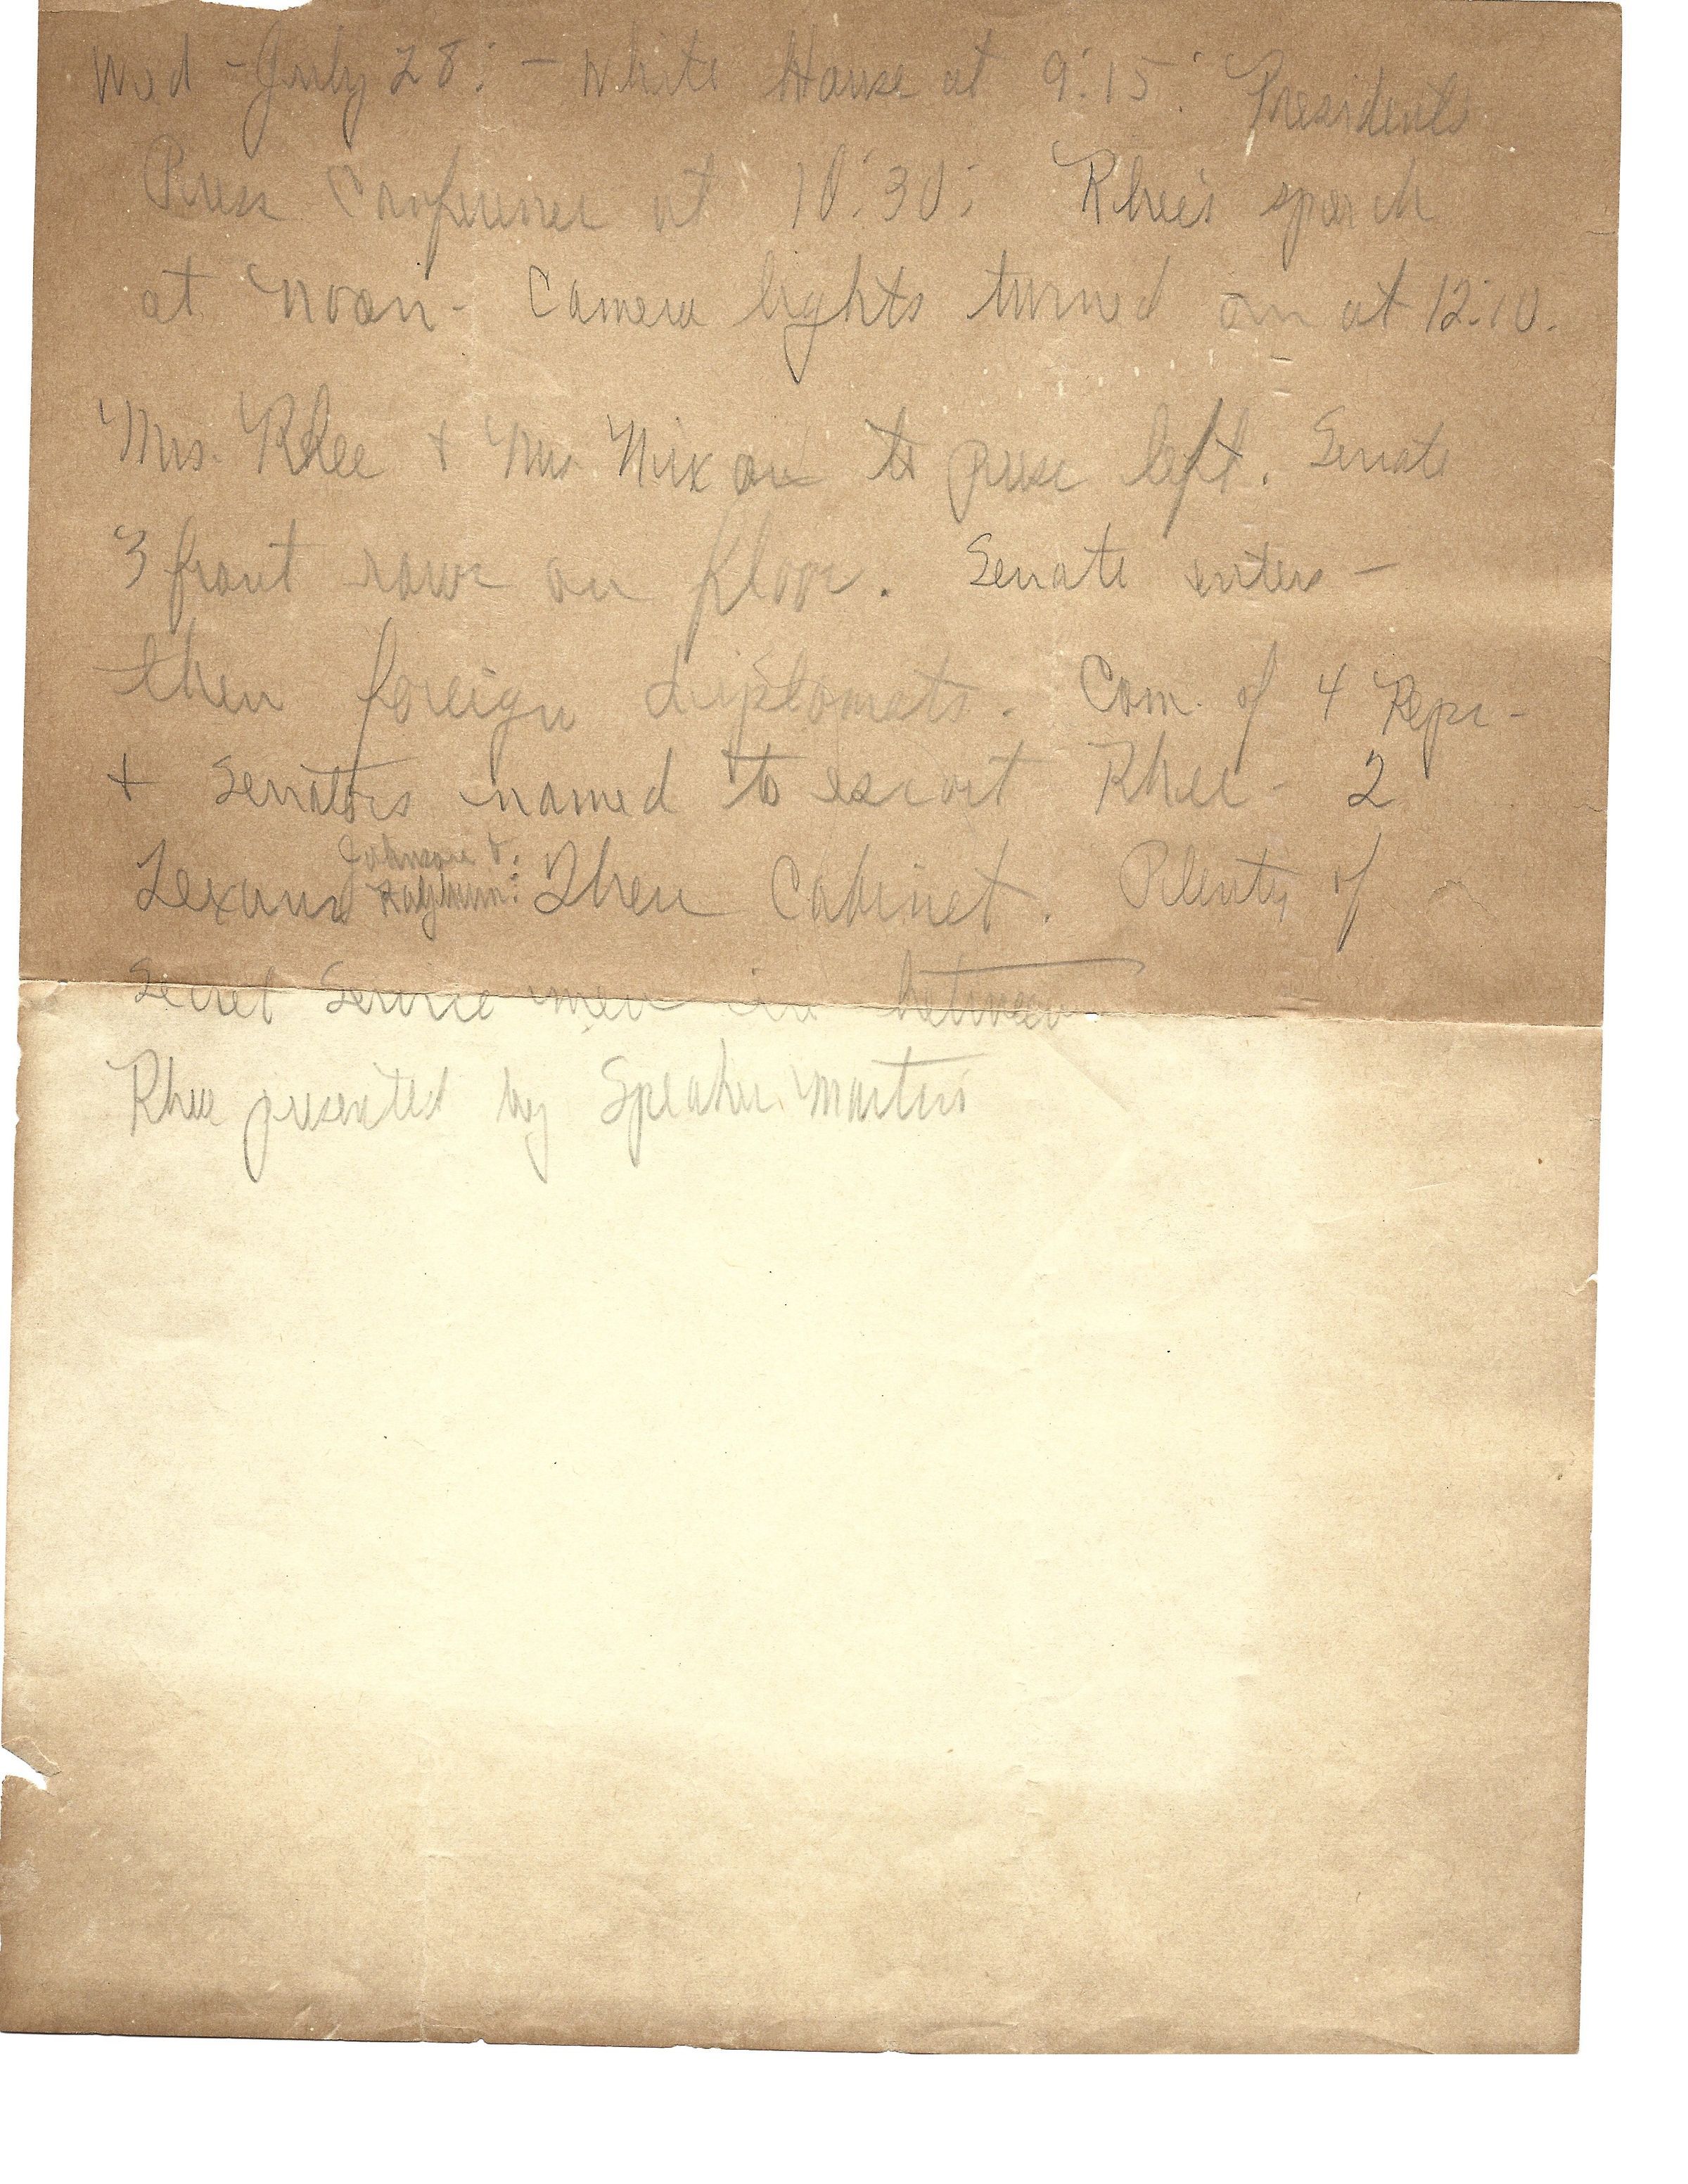 Wed - July 28: - White House at 9:15: Presidents
Press Conference at 10:30: Rhee's speech
at noon - Camera lights turned on at 12:10.
Mrs. Rhee + Mrs. Nixon to press left. Senate
3 front rows on floor. Senate enters -
then foreign diplomats. Com. of 4 Reps -
+ Senators named to escort Rhee - 2
Johnson &
Texans Rayburn: Then Cabinet. Plenty of
Secret Service men in between
Rhee presented by Speaker Martin